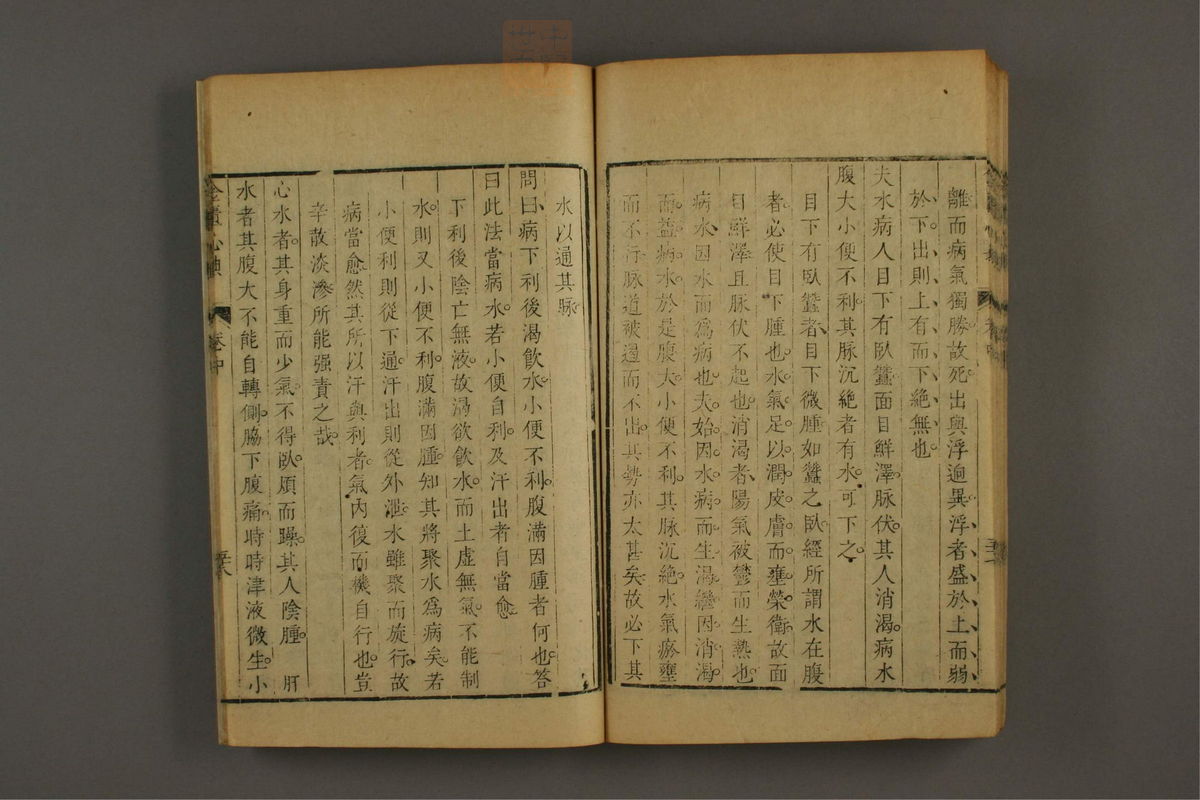 離而病氣獨勝故死出與浮迥異浮者盛於上而弱
於下出則上有而下絕無也
夫水病人目下有臥蠶面目鮮澤脈伏其人消渴病水
腹大小便不利其脈沉絕者有水可下之
目下有臥蠶者目下微腫如蠶之臥經所謂水在腹
者必使目下腫也水氣足以潤皮膚而壅榮衛故面
目鮮澤且脈伏不起也消渴者陽氣被鬱而生熱也
病水因水而爲病也夫始因水病而生渴繼因消渴
而益病水於是腹大小便不利其脈沉絕水氣瘀壅
而不行脈道被遏而不出其勢亦太甚矣故必下其
水以通其脈
問曰病下利後渴飲水小便不利腹滿因腫者何也答
曰此法當病水若小便自利及汗出者自當愈
下利後陰亡無液故渴欲飲水而土虛無氣不能制
水則又小便不利腹滿因腫知其將聚水爲病矣若
小便利則從下通汗出則從外泄水雖聚而旋行故
病當愈然其所以汗與利者氣內復而機自行也豈
辛散淡滲所能强責之哉
心水者其身重而少氣不得臥煩而躁其人陰腫　肝
水者其腹大不能自轉側脇下腹痛時時津液微生小
金匱心典　卷中